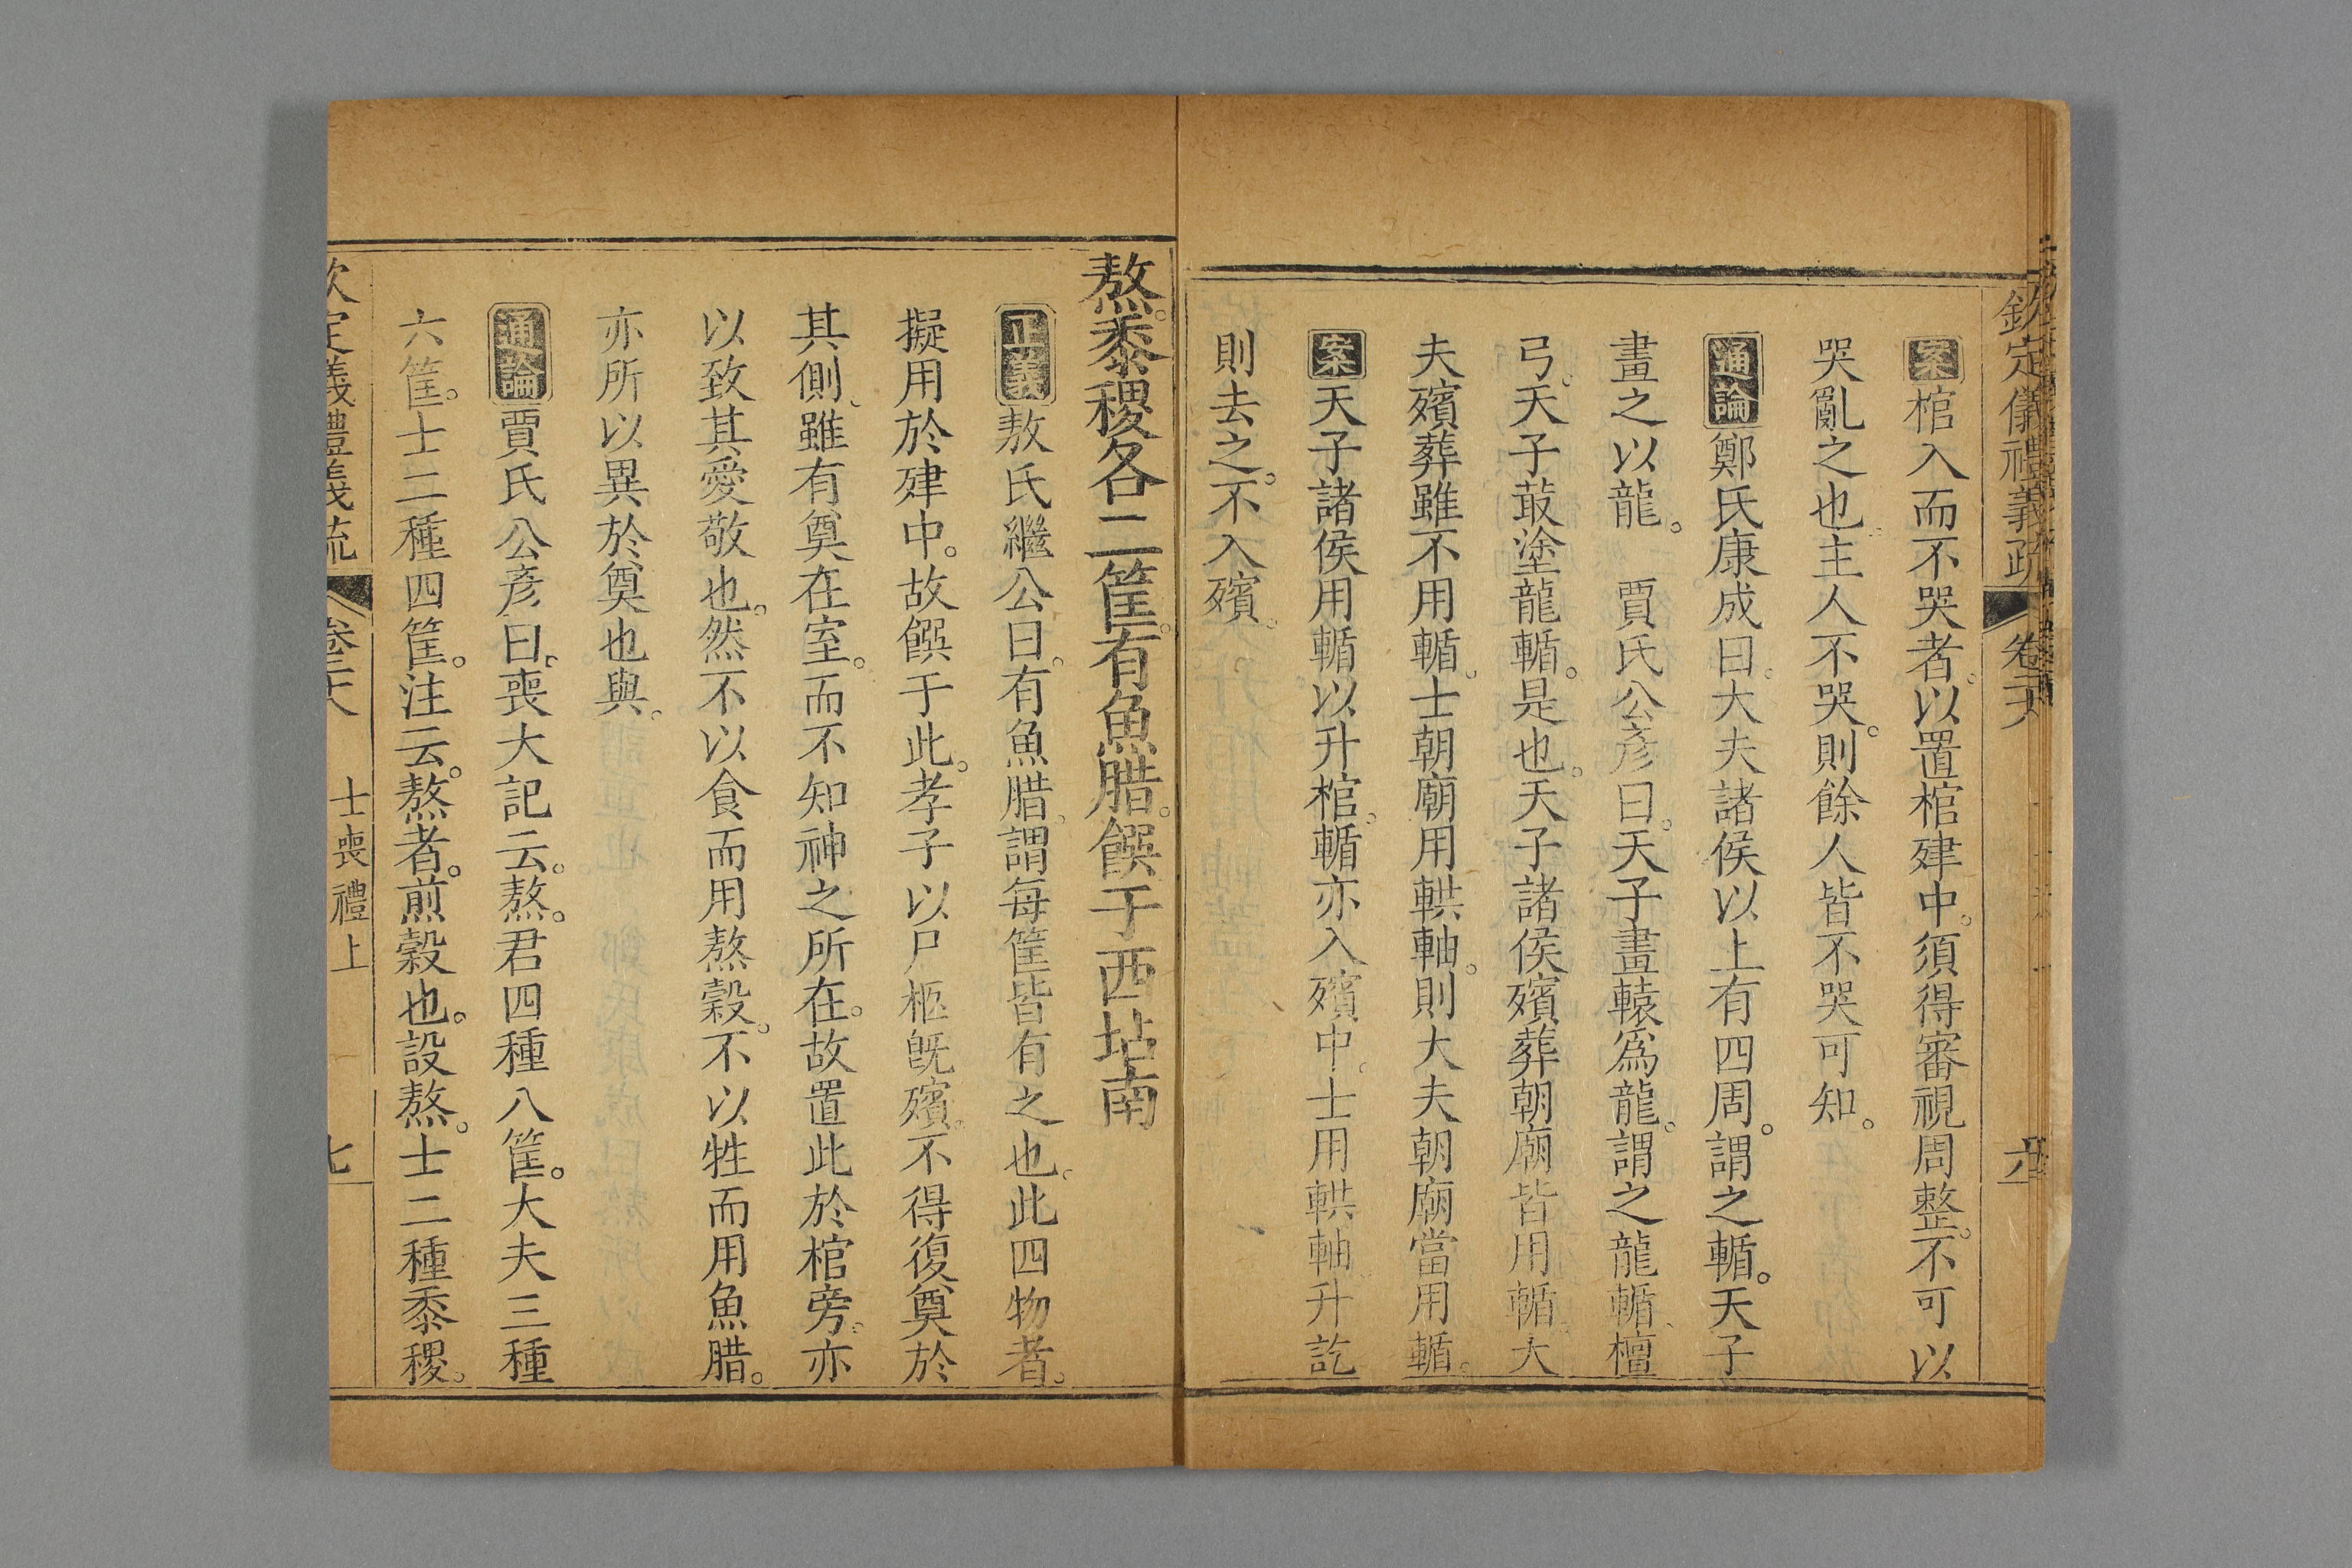 欽定儀禮義疏 卷二十八 六
案棺入而不哭者。以置棺肂中。須得審視周整。不可以
哭亂之也。主人不哭。則餘人皆不哭可知。
通論鄭氏康成曰。大夫諸侯以上有四周。謂之輴。天子
畫之以龍。 賈氏公彥曰。天子畫轅爲龍。謂之龍輴、檀
弓。天子菆塗龍輴。是也。天子諸侯殯葬朝廟皆用輴。大
夫殯葬雖不用輴。士朝廟用輁軸。則大夫朝廟當用輴。
案天子諸侯用輴以升棺。輴亦入殯中。士用輁軸升訖
則去之。不入殯。
熬。黍稷各二筐。有魚腊。饌于西坫南
正義敖氏繼公曰。有魚腊。謂每筐皆有之也。此四物者。
擬用於肂中。故饌于此。孝子以尸柩旣殯。不得復奠於
其側、雖有奠在室。而不知神之所在。故置此於棺旁。亦
以致其愛敬也。然不以食而用熬穀。不以牲而用魚腊。
亦所以異於奠也與。
通論賈氏公彥曰。喪大記云。熬。君四種八筐。大夫三種
六筐。士二種四筐。注云。熬者。煎穀也。設熬。士二種黍稷。
欽定儀禮義疏 卷二十八 士喪禮上 七